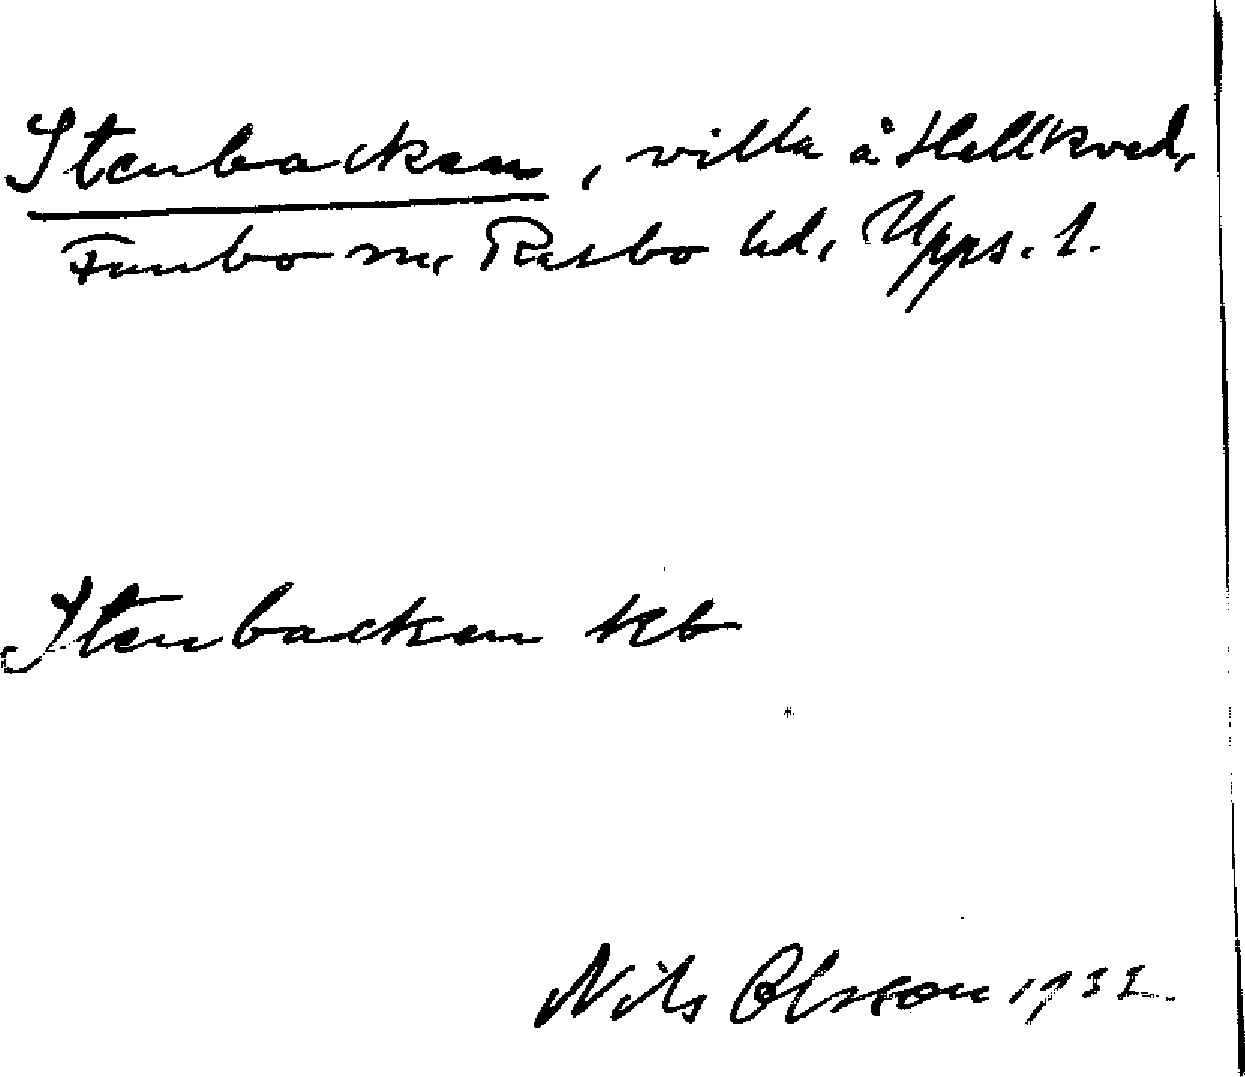 Stenbacken, villa å Hällkved,
Funbo sn, Rasbo hd, Upps. l.
Stenbacken
Nils Olsson 1932